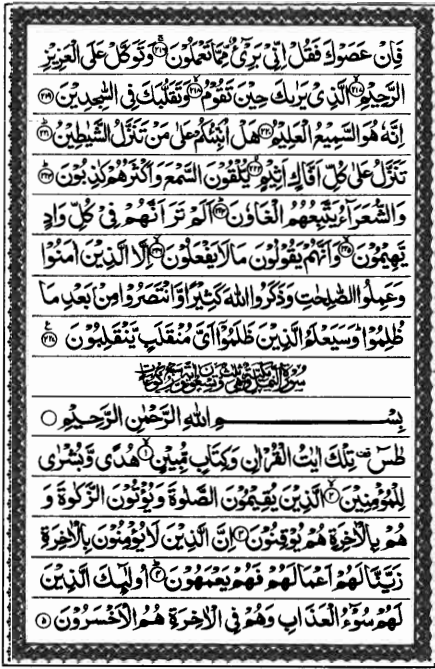 فَاِنْ عَصَوْكَ فَقُلْ اِنِّىْ بَرِىْٓءٌ مِّمَّا تَعْمَلُوْنَ ﴿۲۱۶﴾ وَتَوَكَّلْ عَلَى الْعَزِيْزِ
الرَّحِيْمِ ﴿۲۱۷﴾ الَّذِىْ يَرٰىكَ حِيْنَ تَقُوْمُ ﴿۲۱۸﴾ وَتَقَلُّبَكَ فِى السّٰجِدِيْنَ ﴿۲۱۹﴾
اِنَّهٗ هُوَ السَّمِيْعُ الْعَلِيْمُ ﴿۲۲۰﴾ هَلْ اُنَبِّئُكُمْ عَلٰى مَنْ تَنَزَّلُ الشَّيٰطِيْنُ ﴿۲۲۱﴾
تَنَزَّلُ عَلٰى كُلِّ اَفَّاكٍ اَثِيْمٍ ﴿۲۲۲﴾ يُّلْقُوْنَ السَّمْعَ وَاَكْثَرُهُمْ كٰذِبُوْنَ ﴿۲۲۳﴾
وَالشُّعَرَآءُ يَتَّبِعُهُمُ الْغَاوٗنَ ﴿۲۲۴﴾ اَلَمْ تَرَ اَنَّهُمْ فِىْ كُلِّ وَادٍ
يَّهِيْمُوْنَ ﴿۲۲۵﴾ وَاَنَّهُمْ يَقُوْلُوْنَ مَا لَا يَفْعَلُوْنَ ﴿۲۲۶﴾ اِلَّا الَّذِيْنَ اٰمَنُوْا
وَعَمِلُوا الصّٰلِحٰتِ وَذَكَرُوا اللّٰهَ كَثِيْرًا وَّانْتَصَرُوْا مِنْۢ بَعْدِ مَا
ظُلِمُوْا ؕ وَسَيَعْلَمُ الَّذِيْنَ ظَلَمُوْۤا اَىَّ مُنْقَلَبٍ يَّنْقَلِبُوْنَ ﴿۲۲۷﴾
بِسْمِ اللّٰهِ الرَّحْمٰنِ الرَّحِيْمِ
طٰسٓ تِلْكَ اٰيٰتُ الْقُرْاٰنِ وَكِتَابٍ مُّبِيْنٍ ﴿۱﴾ هُدًى وَّبُشْرٰى
لِلْمُؤْمِنِيْنَ ﴿۲﴾ الَّذِيْنَ يُقِيْمُوْنَ الصَّلٰوةَ وَيُؤْتُوْنَ الزَّكٰوةَ وَ
هُمْ بِالْاٰخِرَةِ هُمْ يُوْقِنُوْنَ ﴿۳﴾ اِنَّ الَّذِيْنَ لَا يُؤْمِنُوْنَ بِالْاٰخِرَةِ
زَيَّنَّا لَهُمْ اَعْمَالَهُمْ فَهُمْ يَعْمَهُوْنَ ﴿۴﴾ اُولٰٓئِكَ الَّذِيْنَ
لَهُمْ سُوْٓءُ الْعَذَابِ وَهُمْ فِى الْاٰخِرَةِ هُمُ الْاَخْسَرُوْنَ ﴿۵﴾